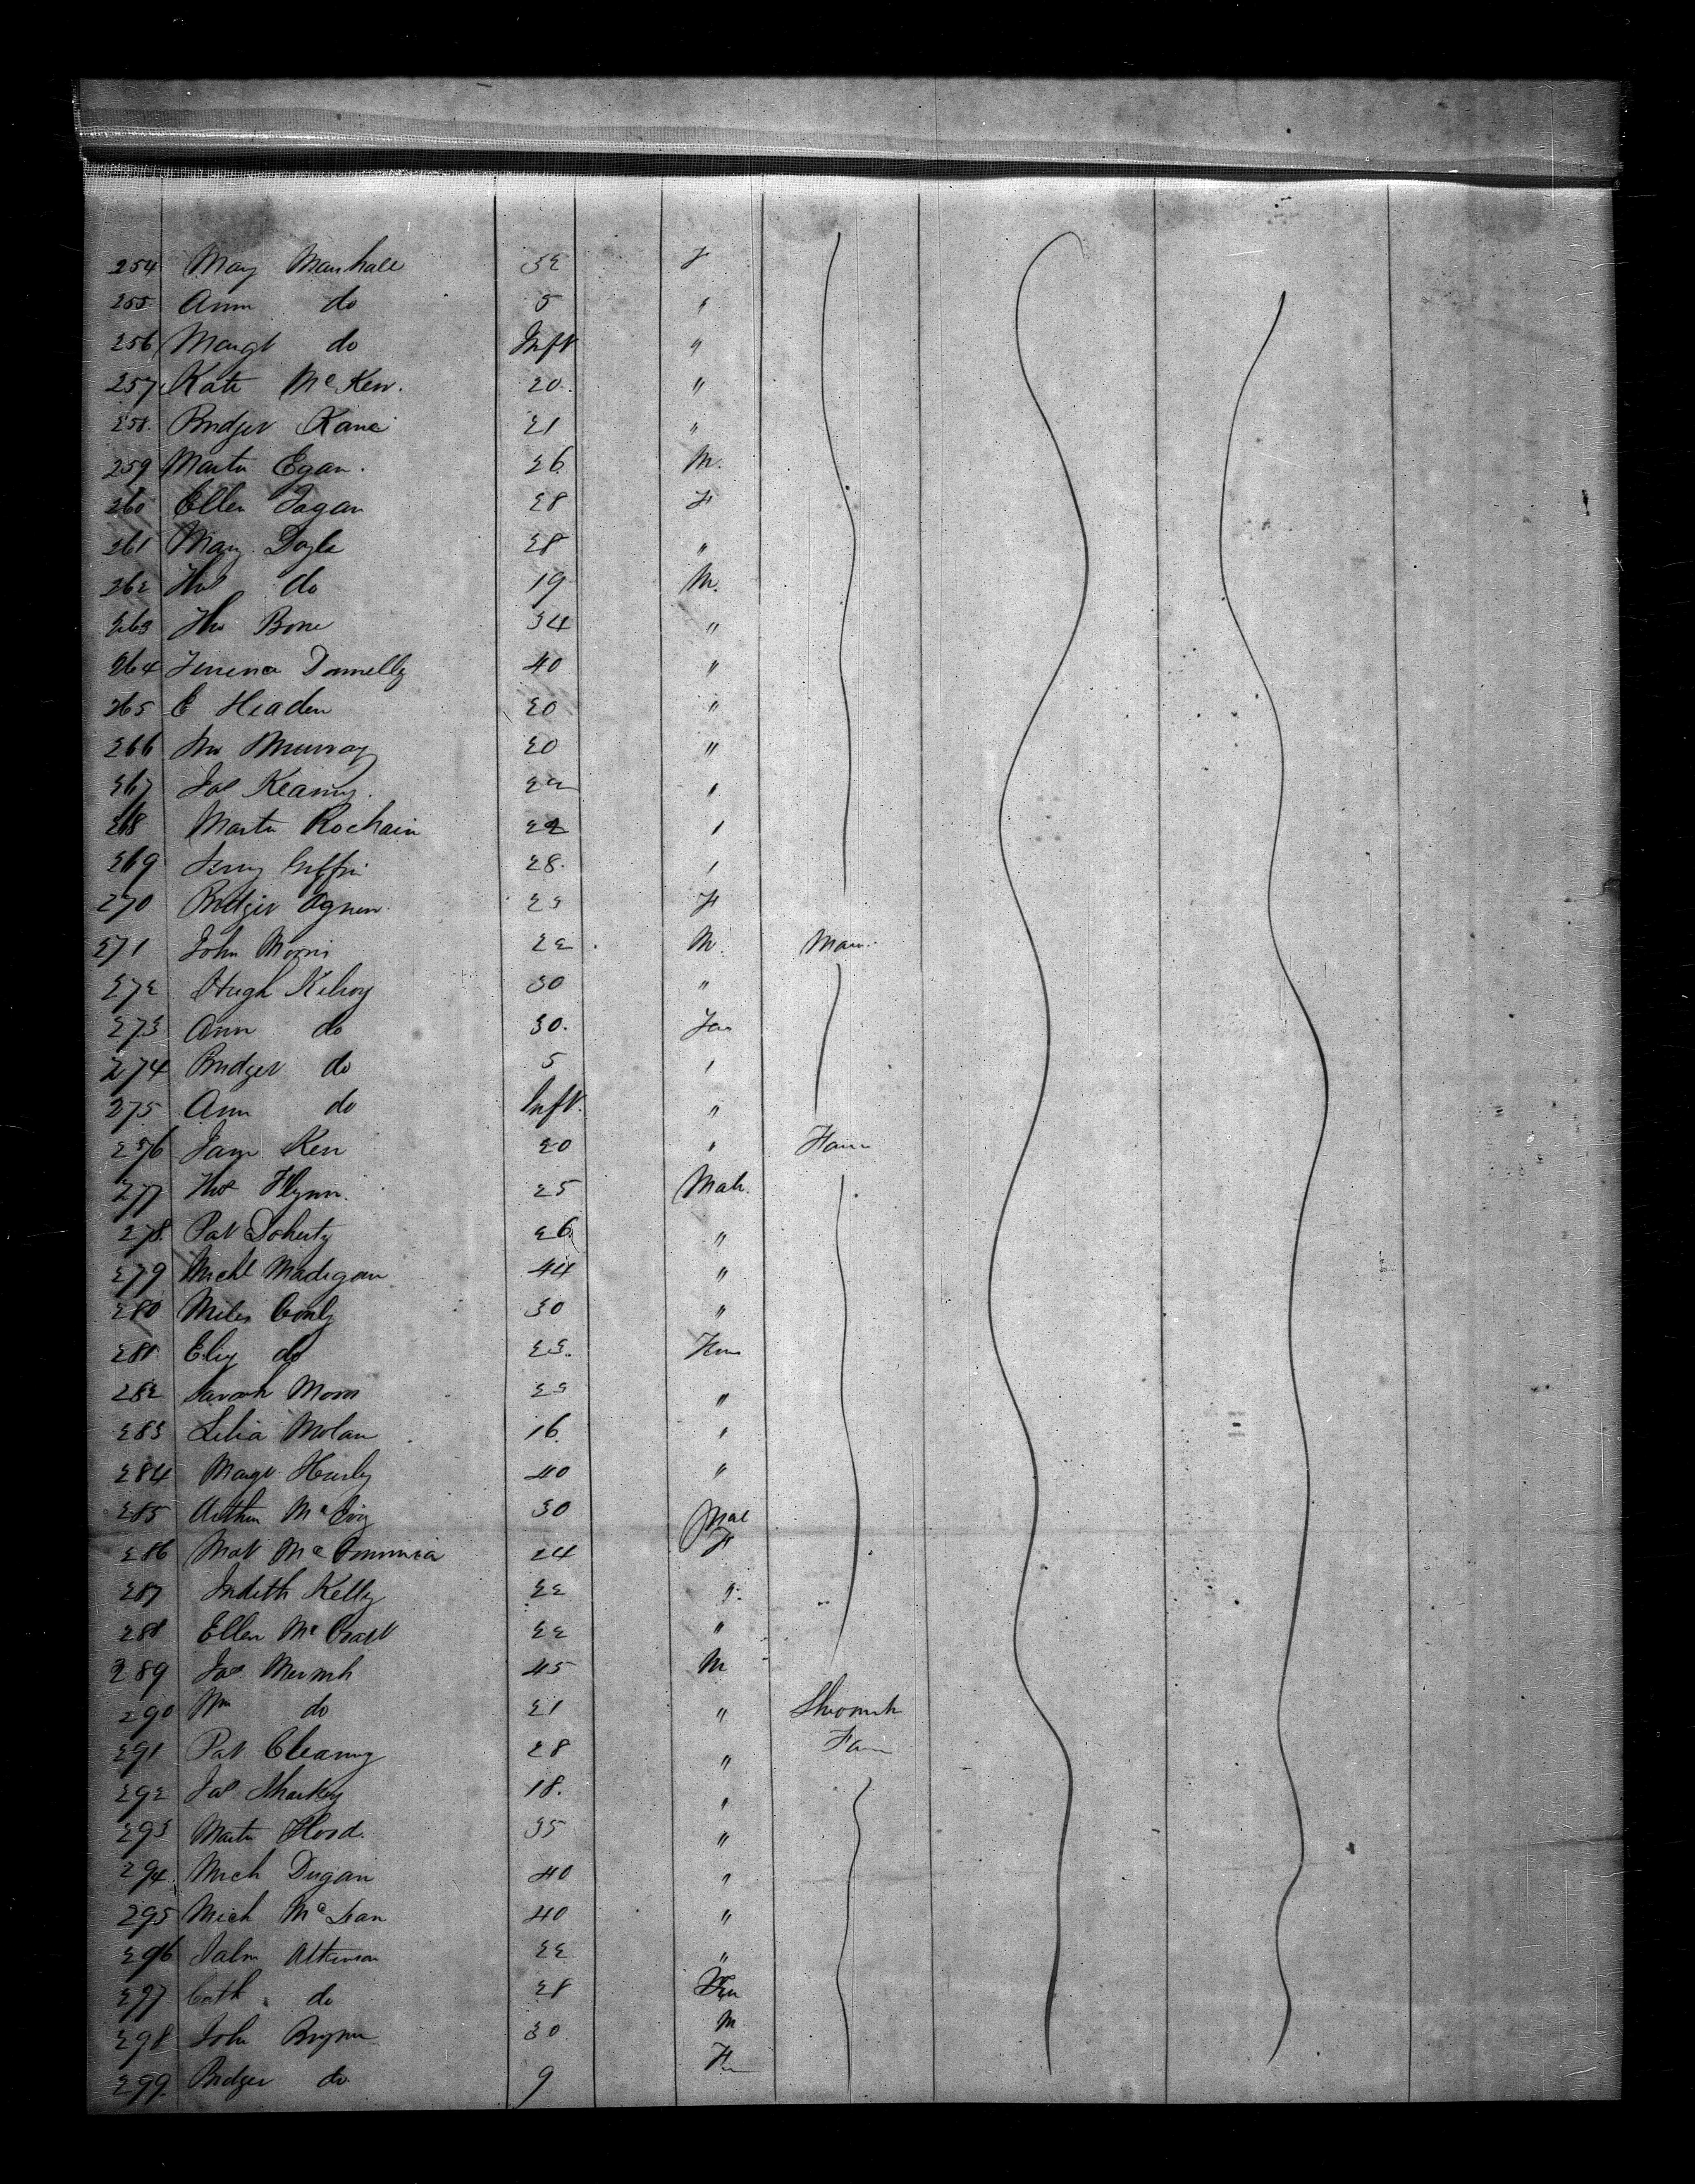 254 Mary Marshall 32 F
255 Ann do 5 "
256 Margt do Inft "
257 Kate McKew. 20 "
258 Bridget Kane 21 "
259 Martin Egan. 26 M.
260 Ellen Fagan 28 F
261 Mary Doyle 28 "
262 Thos do 19 M.
263 Thos Bone 34 "
264 Donnelly 40 "
265 E Headen 20 "
266 Jno Murray 20 "
267 Jas Kearny. 22 "
268 Martin Rochain 22 "
269 Griffin 28. "
270 Bridget Agnew 23 F
271 John Morris 22 M.
272 Hugh Kilroy 30 "
273 Ann do 30. Fem
274 Bridget do 5 "
275 Ann do Inft. "
256 Jane Ken 20 "
277 Thos Flynn. 25 Male.
278. Pat Doherty 26 "
279 Michl Madigan 44 "
280 Miles Conly 30 "
281 Eliz do 23. Fem
282 Sarah Moran 23 "
283 Lilia Molan 16. "
284 Margt Hurly 40 "
285 Arthur 30 Mal
286 Mat 24 F
287 Judith Kelly 22 "
288 Ellen 22 "
289 Jas 45 M
290 Wm do 21 "
291 Pat Cleary 28 "
292 Jas Sharkey 18. "
293 Martin Flood. 35 "
294. Mich Dugan 40 "
295 Mich McLean 40 "
296 Atkinson 22 "
297 Cath do 28 Fem
298 John Brynn 30 M
299. Bridget do 9 F